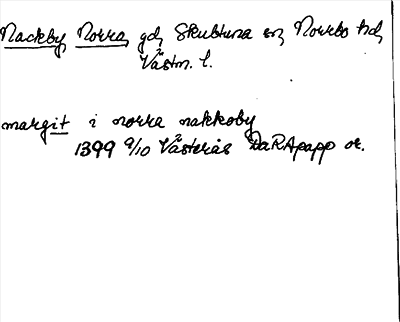 Nackby, Norra, gd, Skultuna sn, Norrbo hd,
Västm. l.
margit i norra nakkoby
1399 9/10 Västerås DaRApapp or.